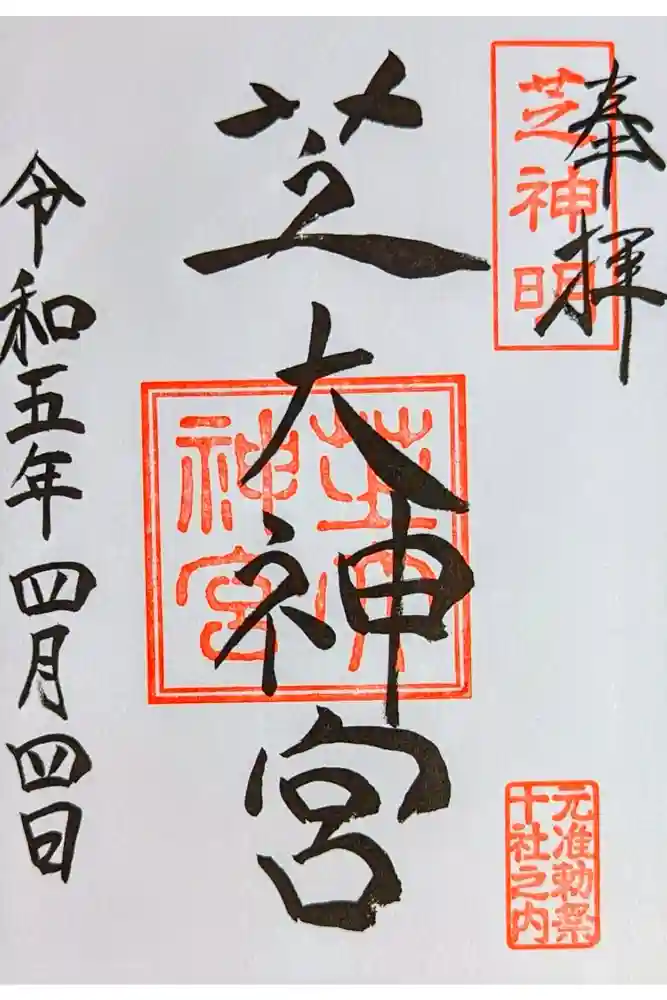 奉拝
芝神明
芝大神宮
芝大神宮
元准勅祭
十社之内
令和五年四月四日